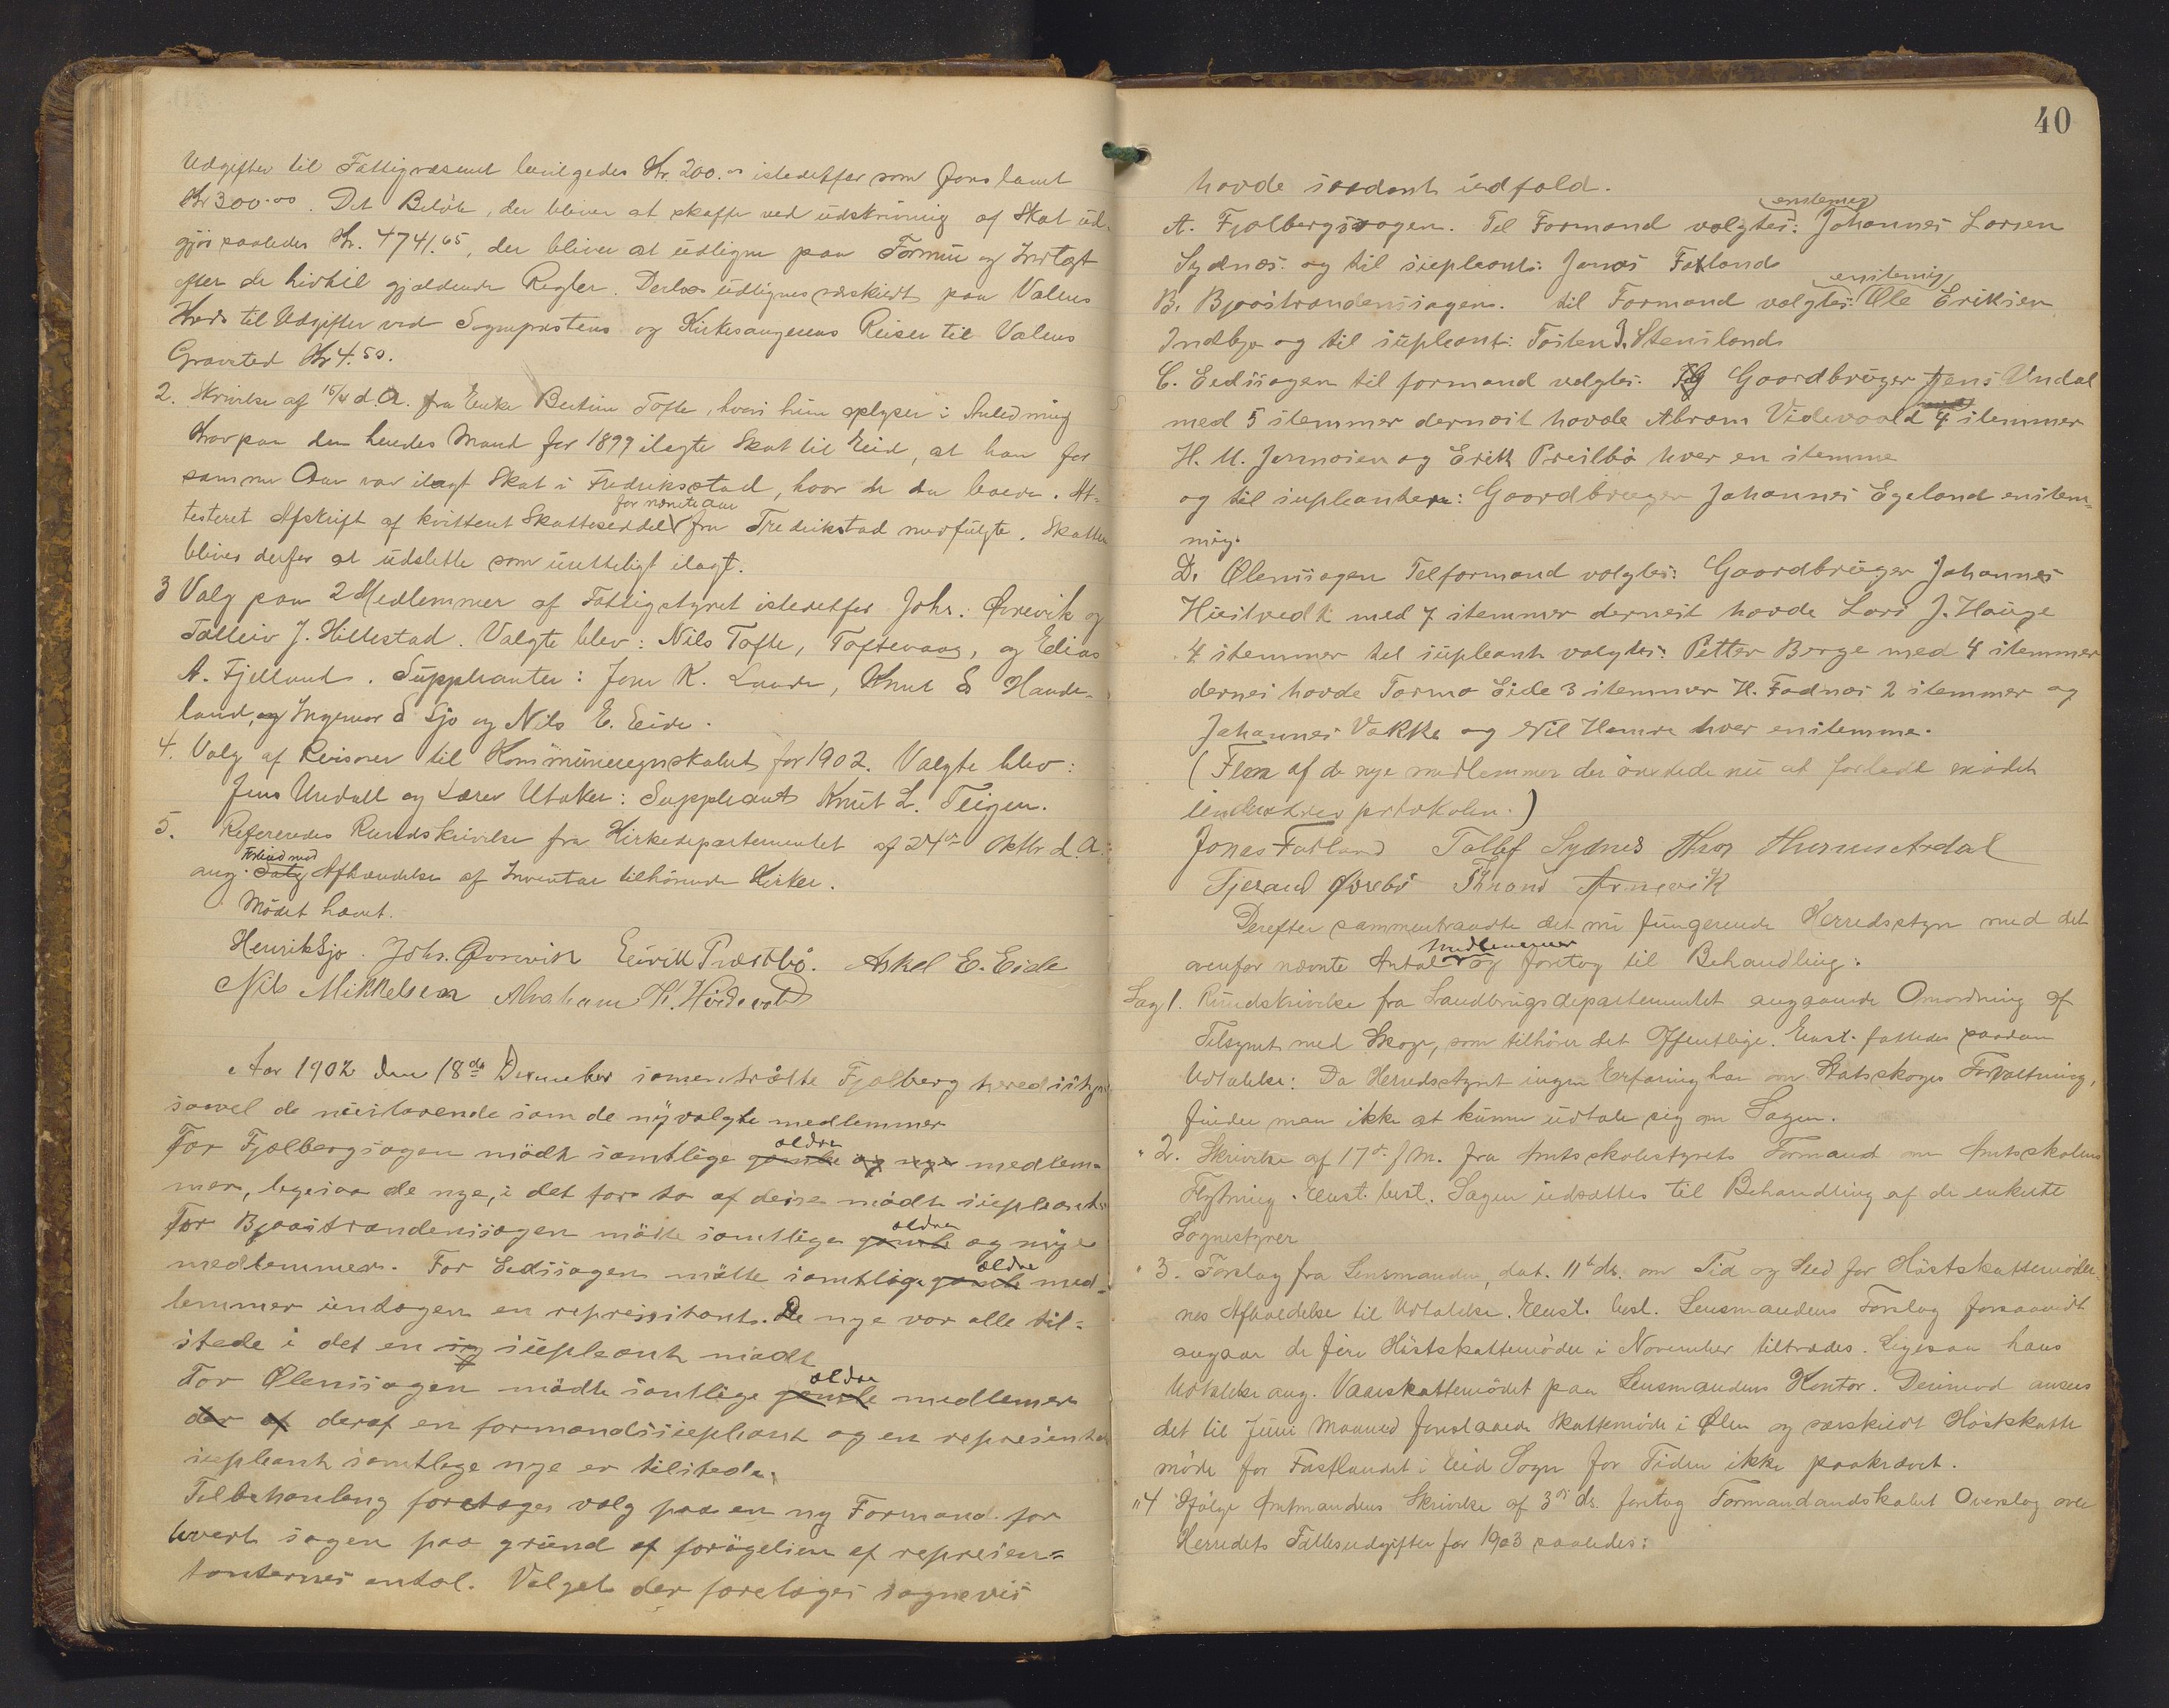 Udgifter til Fattigvæsenet bevilgedes Kr. 200.00 istedetfor som foreslaaet
Kr 300.00. Det Beløb, der bliver at skaffe ved udskrivning af Skat ud-
gjør saaledes Kr. 4741.65, der bliver at udligne paa Formue og Indtægt
efter de hidtil gjældende Regler. Derhos udlignes særskildt paa Valens
Kreds til Udgifter ved Sognepræstens og Kirkesangerens Reiser til Valens
Gravsted Kr 4.50.
2. Skrivelse af 15/4 d. A. fra Enke Bertine Tofte, hvori hun oplyser i Anledning
Krav paa den hendes Mand for 1899 ilagte Skat til Eid, at han for
samme Aar var ilagt Skat i Fredriksstad, hvor de da boede. At-
testeret Afskrift af kvitteret Skatteseddel for nævnte Aar fra Fredrikstad medfulgte. Skatten
bliver derfor at udslette som urettelig ilagt.
3 Valg paa 2 Medlemmer af Fattigstyret istedetfor Johs. Øvrevik og
Tolleiv J. Hillestad. Valgte blev: Nils Tofte, Toftevaag, og Elias
A. Fjelland. Suppleanter: Jone K. Lunde, Knut S Haade-
land, og Ingemar S Sjo og Nils E. Eide.
4. Valg af Revisorer til Kommuneregnskabet for 1902. Valgte blev:
Jens Undall og Lærer Utaker: Suppleant Knut L. Teigen.
5. Refereredes Rundskrivelse fra Kirkedepartementet af 24de Oktbr d. A.
ang. Salg Forbud mod Afhændelse af Inventar tilhørende Kirker.
Mødet hævet.
Henrik Sjo. Johs. Øvrevik Eirik Præstbø. Askel E. Eide
Nils Mikkelsen Abraham H. Hvidevold
Aar 1902 den 18de December samentraatte Fjelberg heredsstyre
sawel de nuverende som de nyvalgte medlemmer
For Fjelbergsogen mødte samtlige gamle og nye ældre medlem-
mer, legesaa de nye, i det for to af deise mødte supleanter
For Bjoastrandenssogen mötte samtlige gamle ældre og nye
medlemmer. For Eedssogen mötte samtlige gamle ældre med-
lemmer undtagen en repressitant. De nye var alle til-
stede i det en sup supleant mødte
For Ølenssogen mødte samtlige gamle ældre medlemer
der af deraf en formandssupleant og en represent
supleant samtlege nye er tilstede.
Tel behanleng foretages valg paa en ny Formand for
hvert sogen paa grund af forøgelsen af represen-
tanternes antal. Valget der foretages sognevis
40
havde saadant indfald.
A. Fjelbergssogen. Tel Formand valgtes: enstemig Johannes Larsen
Sydnes og til supleant: Jonas Fatland
B. Bjoastrandenssogen. til Formand valgtes: enstemig Ole Eriksen
Indbjo og til supleant: Tosten J. Stensland
C. Eedssogen til formand valgtes: Gaardbruger Jens Undal
med 5 stemmer dernæst havde Abram Videvoold med 4 stemmer
H. M. Jonnasen og Erik Preslbø hver en stemme
og til supleantere: Gaardbruger Johannes Egeland enstem-
mig.
D. Ølenssogen Telformand valgtes: Gaardbruger Johannes
Hustvedt med 7 stemmer dernest havde Lars J. Hauge
4 stemmer tel supleant valgtes: Petter Berge med 4 stemmer
dernes havde Tormo Eide 3 stemmer H. Fadnes 2 stemmer og
Johannes Vakke og Nil Hamre hver enstemme.
(Flere af de nye medlemmer der ønskede nu at forlade mødet
underskrev protokolen.)
Jonas Fatland Tollef Sydnes Thor Thorsen Ardal
Tjerand Øvrebø Thrond Arnevik
Derefter sammentraadte det nu fungerende Herredsstyre med det
ovenfor nævnte Antal Medlemmer og foretog til Behandling:
Sag 1. Rundskrivelse fra Landbrugsdepartementet angaaende Omordning af
Tilsynet med Skoge, som tilhører det Offentlige. Enst. fattedes saadan
Udtalelse: Da Herredsstyret ingen Erfaring har om Statsskoges Forvaltning,
finder man ikke at kunne udtale sig om Sagen.
" 2. Skrivelse af 17de f. M. fra Amtsskolestyrets Formand om Amtsskolens
Flytning. Enst. best. Sagen udsættes til Behandling af de enkelte
Sognestyrer
" 3. Forslag fra Lensmanden, dat. 11te ds. om Tid og Sted for Høstskattemøder-
nes Afholdelse til Udtalelse. Enst. best. Lensmandens Forslag forsaavidt
angaar de fire Høstskattemøder i November tiltrædes. Ligesaa hans
Udtalelse ang. Vaarskattemødet paa Lensmandens Kontor. Derimod ansees
det til Juni Maaned foreslaaede Skattemøde i Ølen og særskildt Høstskatte
møde for Fastlandet i Eid Sogn for Tiden ikke paakrævet.
" 4 Ifølge Amtmandens Skrivelse af 3die ds. foretog Formandskabet Overslag over
Herredets Fællesudgifter for 1903 saaledes: